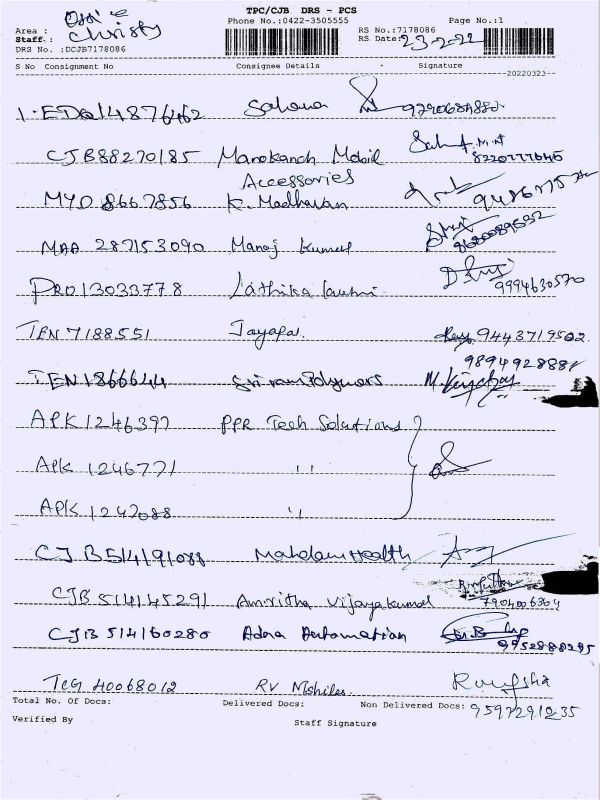 TPC/CJB DRS - PCS
Phone No.:0422-3505555 Page No.:1
Area :
Staff : Christy
RS No.:7178086
RS Date: 23-2-22
DRS No. :DCJB7178086
S No Consignment No Consignee Details Signature
20220323
1. Sahana
CJB88270185 Manokanch Mobil
Accessories
MYD 8667856 K. Madhavan
MAA 287153090 Manoj Kumar
PRO13033778 Lathika
9994630570
TEN 7188551 Jayapal 9443719502
9894928881
TEN1866644 Sri ram Polymers
APK1246397 PPR Tech Solutions
APK 1246771 "
APK 1247088 "
CJB514191088 Mahalaxmi Health
CJB 514145291 Amritha Vijayakumar 7904006304
CJB 514160280 Adna Automation 9952888295
TCG 40068012 RV Mshiles
Total No. Of Docs: Delivered Docs: Non Delivered Docs: 9597291235
Verified By Staff Signature